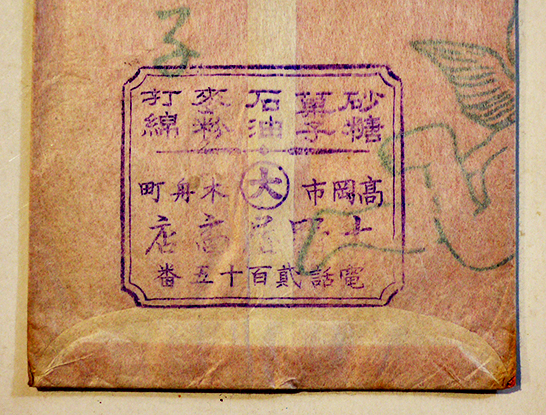 子
砂糖
菓子
石油
麥粉
打綿
髙岡市 大 木舟町
屋商店
電話貳百十五番